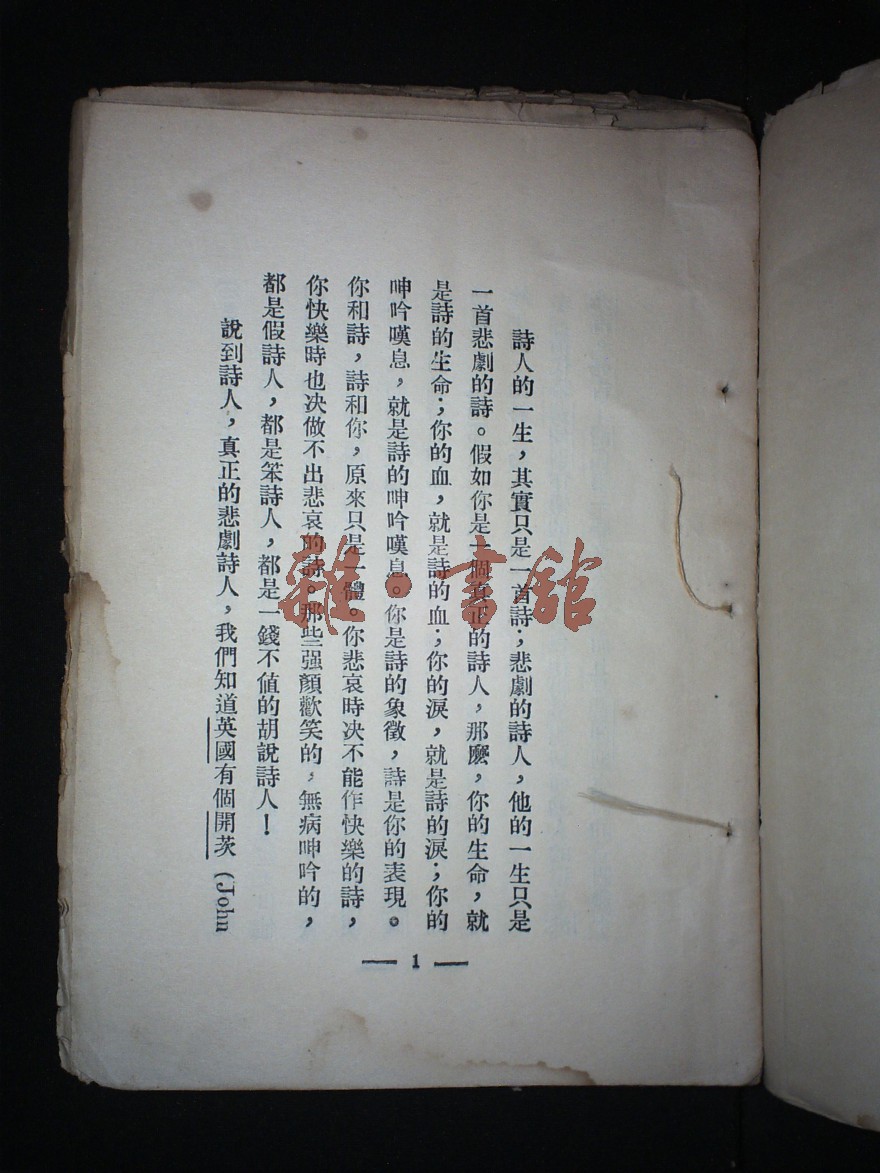 詩人的一生，其實只是一首詩；悲劇的詩人，他的一生只是
一首悲劇的詩。假如你是一個真正的詩人，那麼，你的生命，就
是詩的生命；你的血，就是詩的血；你的淚，就是詩的淚；你的
呻吟嘆息，就是詩的呻吟嘆息。你是詩的象徵，詩是你的表現。
你和詩，詩和你，原來只是一體。你悲哀時决不能作快樂的詩，
你快樂時也决做不出悲哀的詩。那些强顏歡笑的，無病呻吟的，
都是假詩人，都是笨詩人，都是一錢不值的胡說詩人！
說到詩人，真正的悲劇詩人，我們知道英國有個開茨 (John
— 1 —
雜·書館